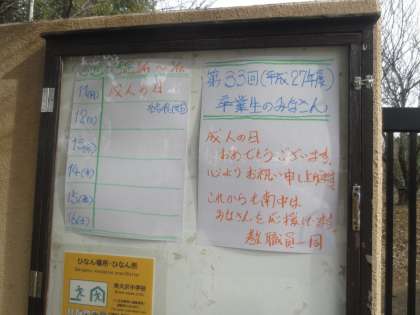 11(月) 成人の日
12(火)
13(水)
14(木)
15(金)
16(土)
第33回(平成27年度)
卒業生のみなさん
成人の日
おめでとうございます。
心よりお祝い申し上げます。
これからも南中は
みなさんを応援します。
教職員一同
ひなん場所・ひなん所
南大沢小学校